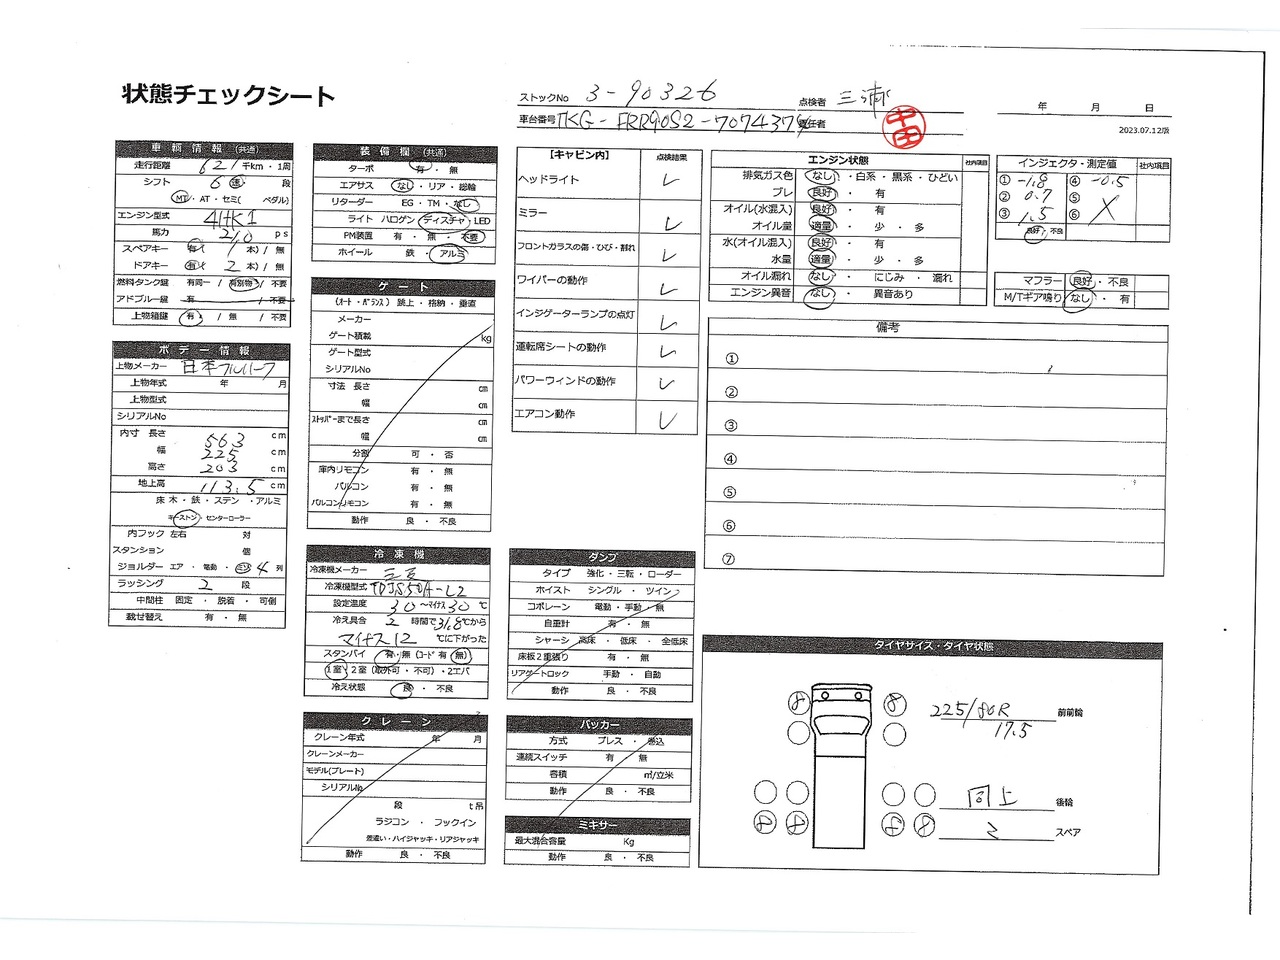 状態チェックシート
ストックNo 3-90326
点検者 三浦
年 月 日
車台番号 TKG-FRR90S2-7074374
責任者 中田
2023.07.12版
車輌情報 (共通)
走行距離 621 千km・1周
シフト 6 速 段
MT・AT・セミ( ペダル)
エンジン型式 4HK1
馬力 210 ps
スペアキー 有( 1 本) / 無
ドアキー 有( 2 本) / 無
燃料タンク鍵 有同一 / 有別物 / 不要
アドブルー鍵 有 / 不要
上物箱鍵 有 / 無 / 不要
ボデー情報
上物メーカー 日本フルハーフ
上物年式 年 月
上物型式
シリアルNo
内寸 長さ 563 cm
幅 225 cm
高さ 203 cm
地上高 113.5 cm
床 木・鉄・ステン・アルミ
キーストン センターローラー
内フック 左右 対
スタンション 個
ジョルダー エア・電動・ミゾ 4 列
ラッシング 2 段
中間柱 固定・脱着・可倒
載せ替え 有・無
装備欄 (共通)
ターボ 有・無
エアサス なし・リア・総輪
リターダー EG・TM・なし
ライト ハロゲン・ディスチャ・LED
PM装置 有・無・不要
ホイール 鉄・アルミ
ゲート
(オート・バランス) 跳上・格納・垂直
メーカー
ゲート積載 kg
ゲート型式
シリアルNo
寸法 長さ cm
幅 cm
ストッパーまで長さ cm
幅 cm
分割 可・否
庫内リモコン 有・無
バルコン 有・無
バルコンリモコン 有・無
動作 良・不良
冷凍機
冷凍機メーカー 三菱
冷凍機型式 TDJS50A-L2
設定温度 30 ～マイナス 30 ℃
冷え具合 2 時間で 31.8 ℃から
マイナス 12 ℃に下がった
スタンバイ 有・無 (コード 有・無)
1室・2室 (取外可・不可)・2エバ
冷え状態 良・不良
クレーン
クレーン年式 年 月
クレーンメーカー
モデル(プレート)
シリアルNo
段 t吊
ラジコン・フックイン
差違い・ハイジャッキ・リアジャッキ
動作 良・不良
【キャビン内】 点検結果
ヘッドライト ✓
ミラー ✓
フロントガラスの傷・ひび・割れ ✓
ワイパーの動作 ✓
インジゲーターランプの点灯 ✓
運転席シートの動作 ✓
パワーウィンドの動作 ✓
エアコン動作 ✓
ダンプ
タイプ 強化・三転・ローダー
ホイスト シングル・ツイン
コボレーン 電動・手動・無
自重計 有・無
シャーシ 高床・低床・全低床
床板2重張り 有・無
リアゲートロック 手動・自動
動作 良・不良
パッカー
方式 プレス・巻込
連続スイッチ 有 無
容積 ㎥/立米
動作 良・不良
ミキサー
最大混合容量 Kg
動作 良・不良
エンジン状態 社内項目
排気ガス色 なし・白系・黒系・ひどい
ブレ 良好・有
オイル(水混入) 良好・有
オイル量 適量・少・多
水(オイル混入) 良好・有
水量 適量・少・多
オイル漏れ なし・にじみ・漏れ
エンジン異音 なし・異音あり
インジェクタ・測定値 社内項目
① -1.8 ④ -0.5
② 0.7 ⑤
③ 1.5 ⑥ X
良好・不良
マフラー 良好・不良
M/Tギア鳴り なし・有
備考
①
②
③
④
⑤
⑥
⑦
タイヤサイズ・タイヤ状態
8 8
225/80R 前前輪
17.5
同上 後輪
8 8 8 8
ミ スペア